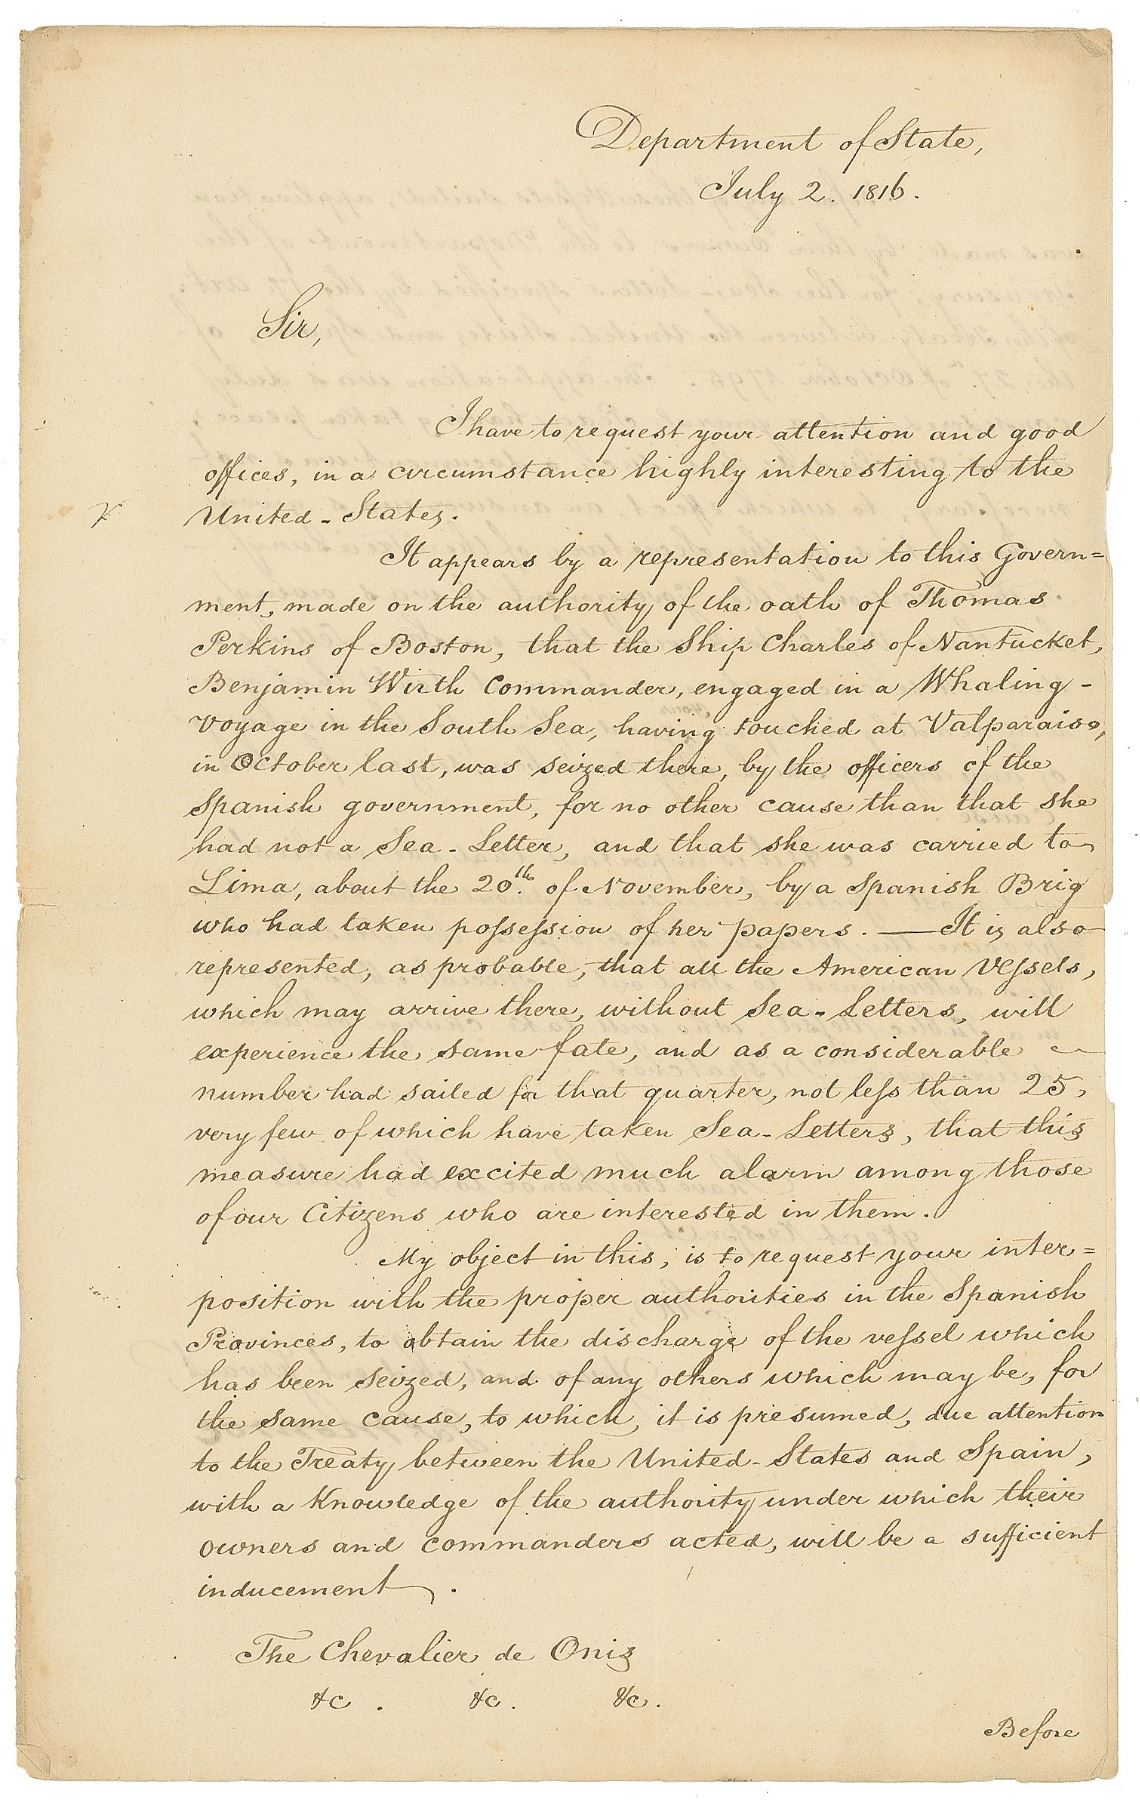 Department of State,
July 2. 1816.
Sir,
I have to request your attention and good
offices, in a circumstance highly interesting to the
United-States.
It appears by a representation to this Govern=
ment, made on the authority of the oath of Thomas
Perkins of Boston, that the Ship Charles of Nantucket,
Benjamin Wirth Commander, engaged in a Whaling-
voyage in the South Sea, having touched at Valparaiso,
in October last, was seized there, by the officers of the
Spanish government, for no other cause than that she
had not a Sea-Letter, and that she was carried to
Lima, about the 20th. of November, by a Spanish Brig
who had taken possession of her papers. — It is also
represented, as probable, that all the American Vessels,
which may arrive there, without Sea-Letters, will
experience the same fate, and as a considerable
number had sailed for that quarter, not less than 25,
very few of which have taken Sea-Letters, that this
measure had excited much alarm among those
of our Citizens who are interested in them.
My object in this, is to request your inter=
position with the proper authorities in the Spanish
Provinces, to obtain the discharge of the vessel which
has been seized, and of any others which may be, for
the same cause, to which, it is presumed, due attention
to the Treaty between the United-States and Spain,
with a knowledge of the authority under which their
owners and commanders acted, will be a sufficient
inducement.
The Chevalier de Onis
&c. &c. &c.
Before